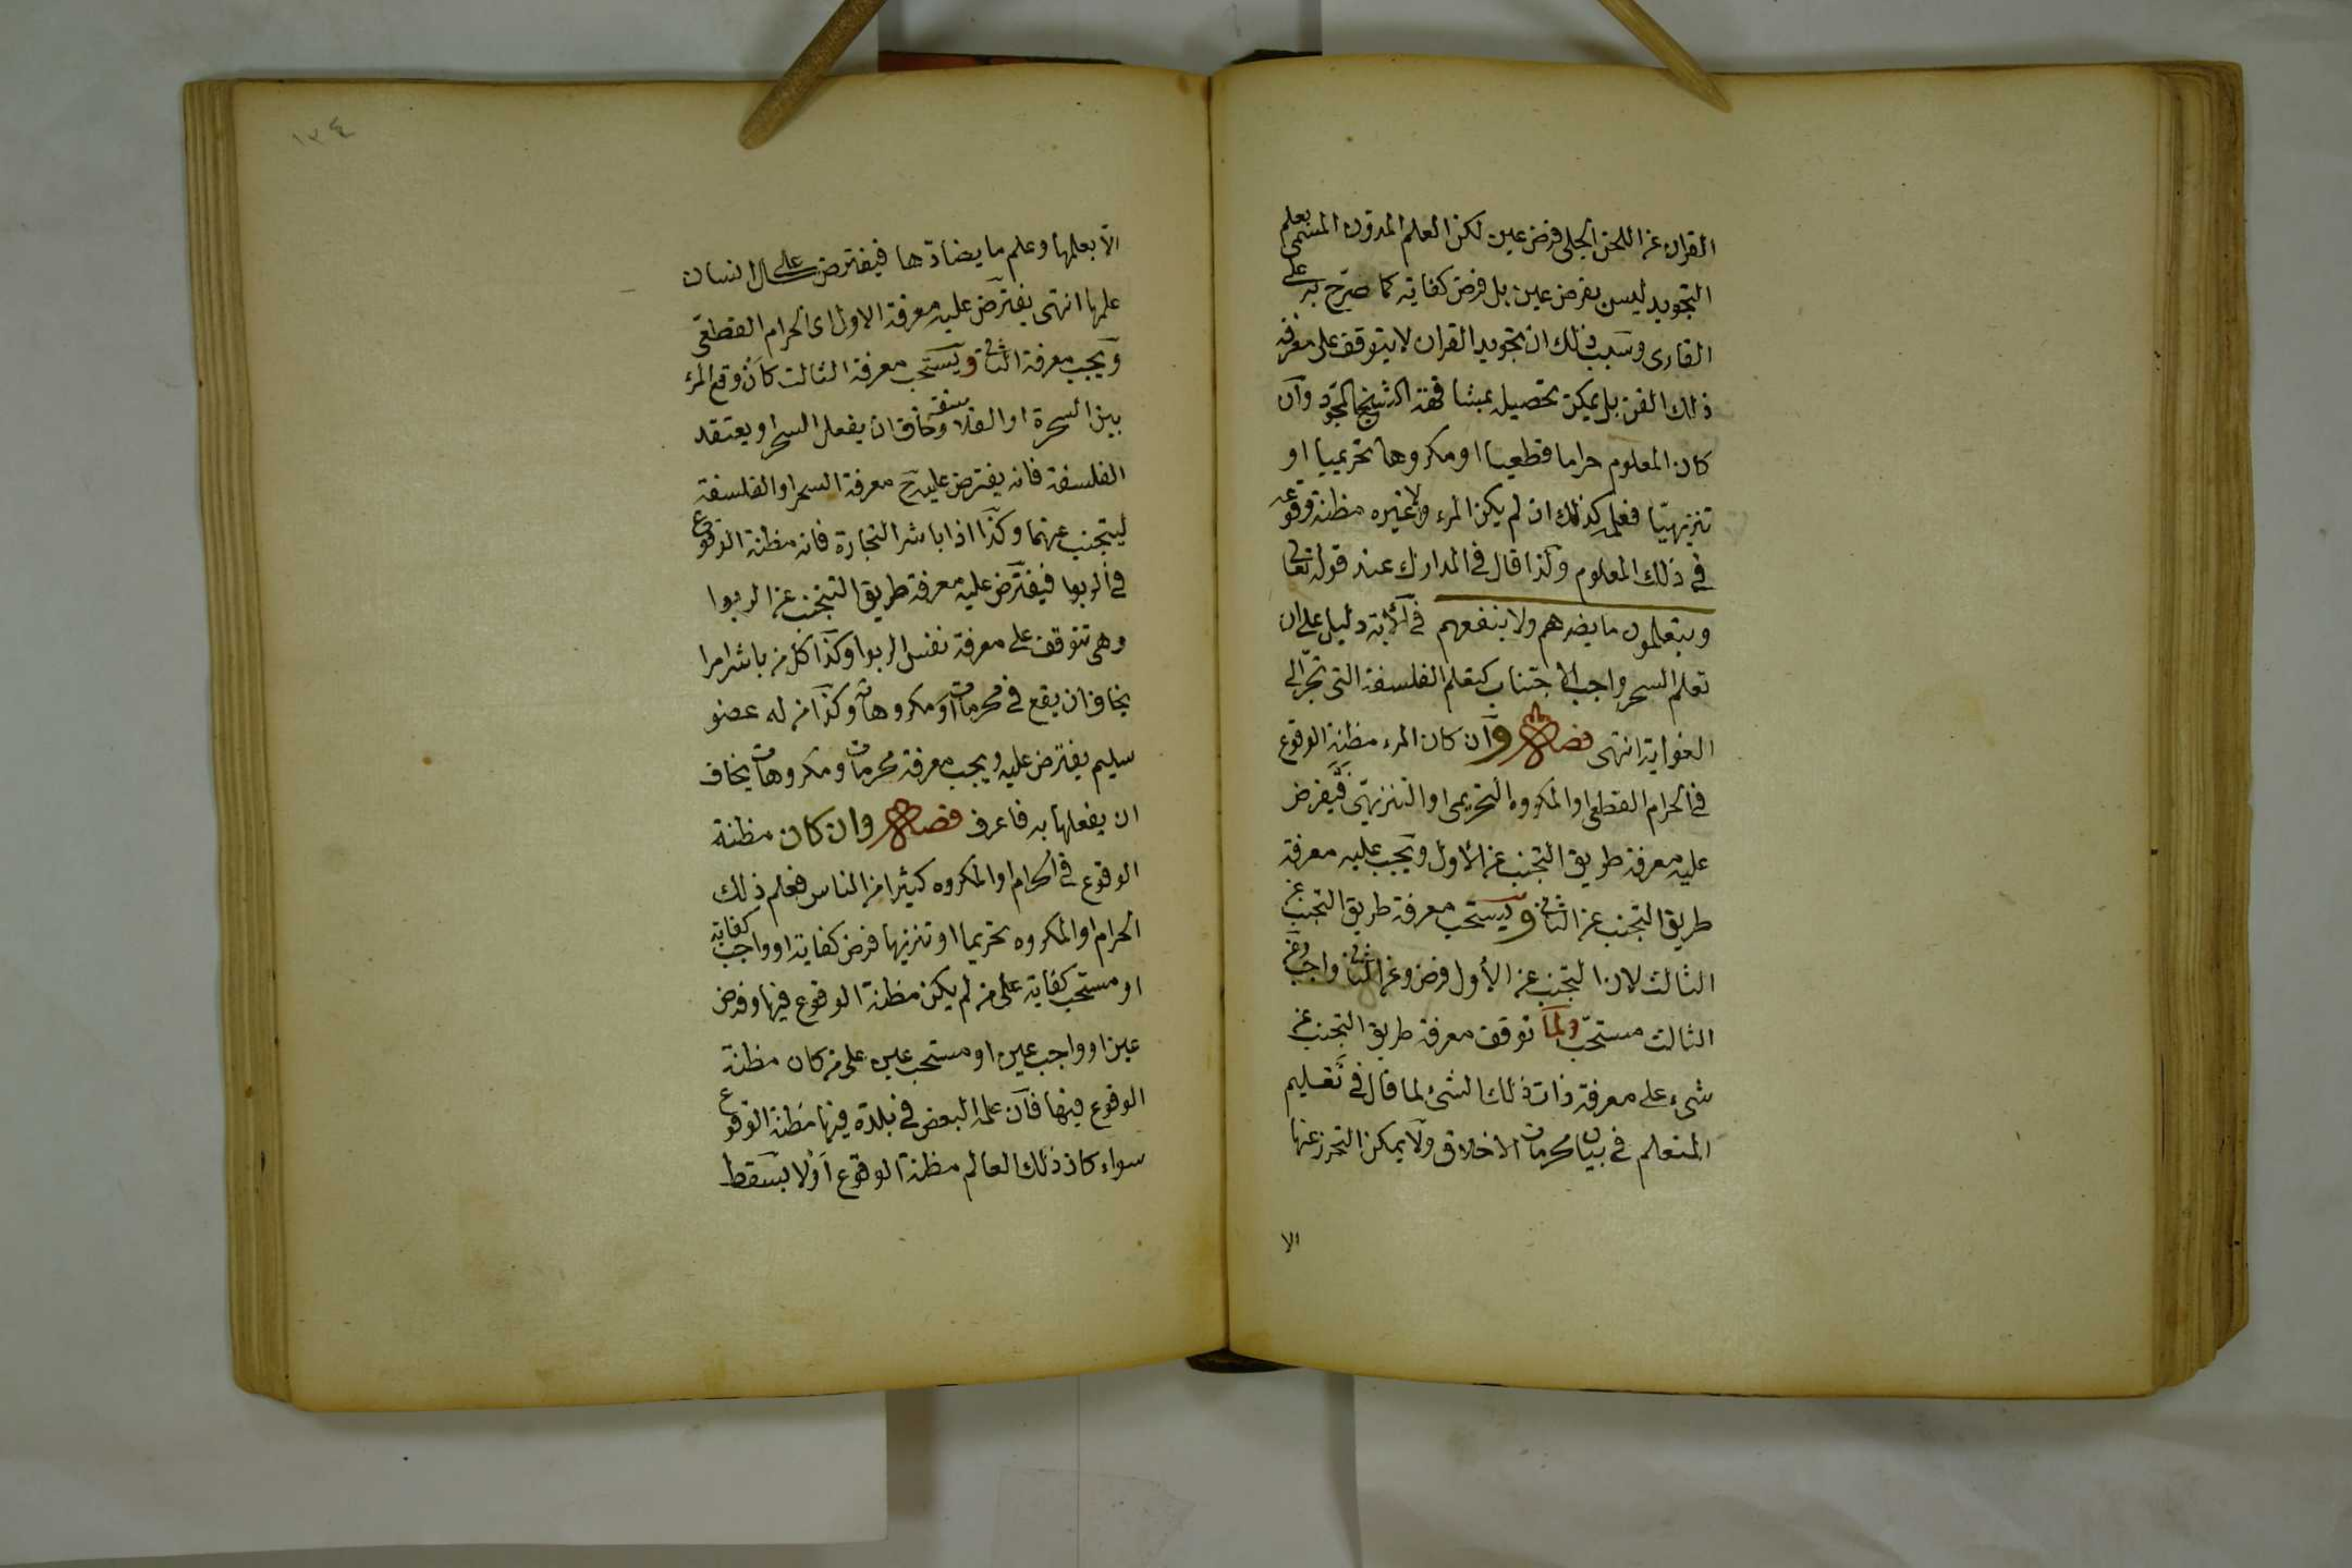 القران عن اللحن الجلى فرض عين لكن العلم المدون المسمى بعلم
التجويد ليس بفرض عين بل فرض كفاية كما صرّح به على
القارى وسبب ذلك ان تجويد القران لا يتوقف على معرفة
ذلك الفن بل يمكن تحصيله بمشافهة الشيخ المجوّد وان
كان المعلوم حراما قطعيا او مكروها تحريميا او
تنزيهيّا فعلمه كذلك ان لم يكن المرء ولا غيره مظنة وقوعه
فى ذلك المعلوم ولذا قال فى المدارك عند قوله تعالى
ويتعلمون ما يضرهم ولا ينفعهم فى الآية دليل على ان
تعلم السحر واجب الاجتناب كتعلم الفلسفة التى تجرّ الى
الغواية انتهى فصل وان كان المرء مظنة الوقوع
فى الحرام القطعى او المكروه التحريمى او التنزيهىّ فيفرض
عليه معرفة طريق التجنب عن الاول ويجب عليه معرفة
طريق التجنب عن الثانى ويستحب معرفة طريق التجنب عن
الثالث لان التجنب عن الأول فرض وعن الثانى واجب وعن
الثالث مستحبّ ولما توقف معرفة طريق التجنب عن
شىء على معرفة ذات ذلك الشئ لما قال فى تعليم
المتعلم فى بيان محرمات الاخلاق ولا يمكن التحرز عنها
الا
١٣٤
الّا بعلمها وعلم ما يضادّها فيفترض على الانسان
علمها انتهى يفترض عليه معرفة الاول اى الحرام القطعّى
ويجب معرفة الثانى ويستحب معرفة الثالث كان وقع المرء
بين السحرة او الفلاسفة وخاف ان يفعل السحر او يعتقد
الفلسفة فانه يفترض عليه ح معرفة السحر او الفلسفة
ليتجنب عنهما وكذا اذا باشر التجارة فانه مظنة الوقوع
فى الربوا فيفترض عليه معرفة طريق التجنب عن الربوا
وهى تتوقف على معرفة نفس الربوا وكذا كل من باشر امرا
يخاف ان يقع فى محرماته او مكروهاته وكذا من له عضو
سليم يفترض عليه ويجب معرفة محرمات ومكروهات يخاف
ان يفعلها به فاعرف فصل وان كان مظنة
الوقوع فى الحرام او المكروه كثيرا من الناس فعلم ذلك
الحرام او المكروه تحريما او تنزيها فرض كفاية او واجب كفاية
او مستحب كفاية على من لم يكن مظنة الوقوع فيها وفرض
عين او واجب عين او مستحب عين على من كان مظنة
الوقوع فيها فان علمه البعض فى بلدة فيها مظنة الوقوع
سواء كان ذلك العالم مظنة الوقوع او لا يسقط